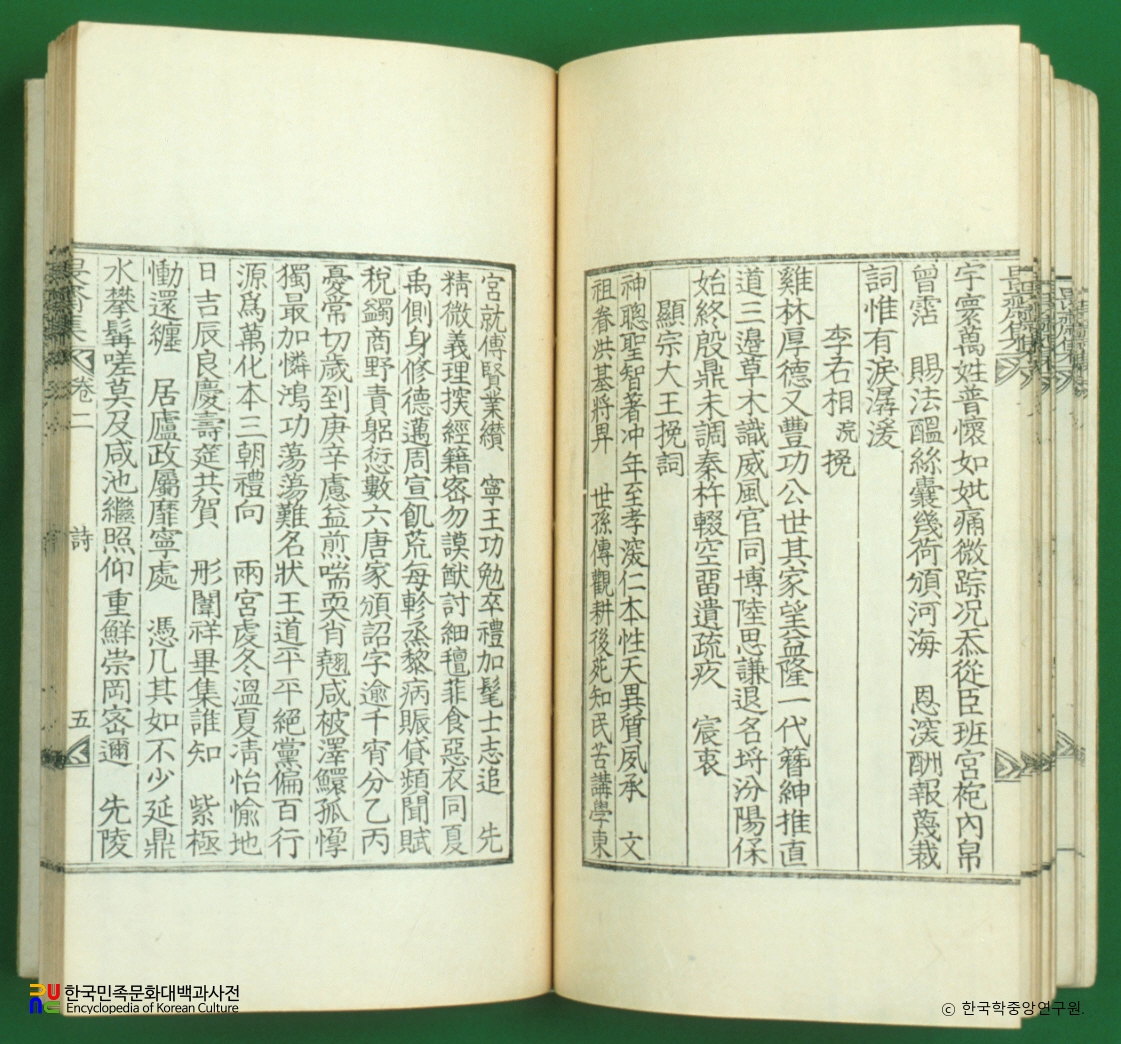 宇寰萬姓普懷如妣痛微踪况忝從臣班宮桅內帛
曾霑 賜法醞絲囊幾荷頒河海 恩深酬報蔑裁
詞惟有淚潺湲
李右相 浣 挽
雞林厚德又豐功公世其家望益隆一代簪紳推直
道三邊草木識威風官同博陸思謙退名埒汾陽保
始終殷鼎未調秦杵輟空留遺疏疚 宸衷
顯宗大王挽詞
神聰聖智著冲年至孝深仁本性天異質夙承 文
祖眷洪基將畀 世孫傳觀耕後苑知民苦講學東
宮就傅賢業纘 寧王功勉卒禮加髦士志追 先
精微義理揬經籍密勿謨猷討細氈菲食惡衣同夏
禹側身修德邁周宣飢荒每軫烝黎病賑貸頻聞賦
稅蠲商野責躬愆數六唐家頒詔字逾千宵分乙丙
憂常切歲到庚辛慮益煎喘耎肖翹咸被澤鰥孤惸
獨最加憐鴻功蕩蕩難名狀王道平平絕黨偏百行
源爲萬化本三朝禮向 兩宮虔冬溫夏凊怡愉地
日吉辰良慶壽筵共賀 形闈祥畢集誰知 紫極
慟還纏 居廬政屬靡寧處 憑几其如不少延鼎
水攀髯嗟莫及咸池繼照仰重鮮崇岡密邇 先陵
卷二
詩
五
한국민족문화대백과사전
Encyclopedia of Korean Culture
ⓒ 한국학중앙연구원.